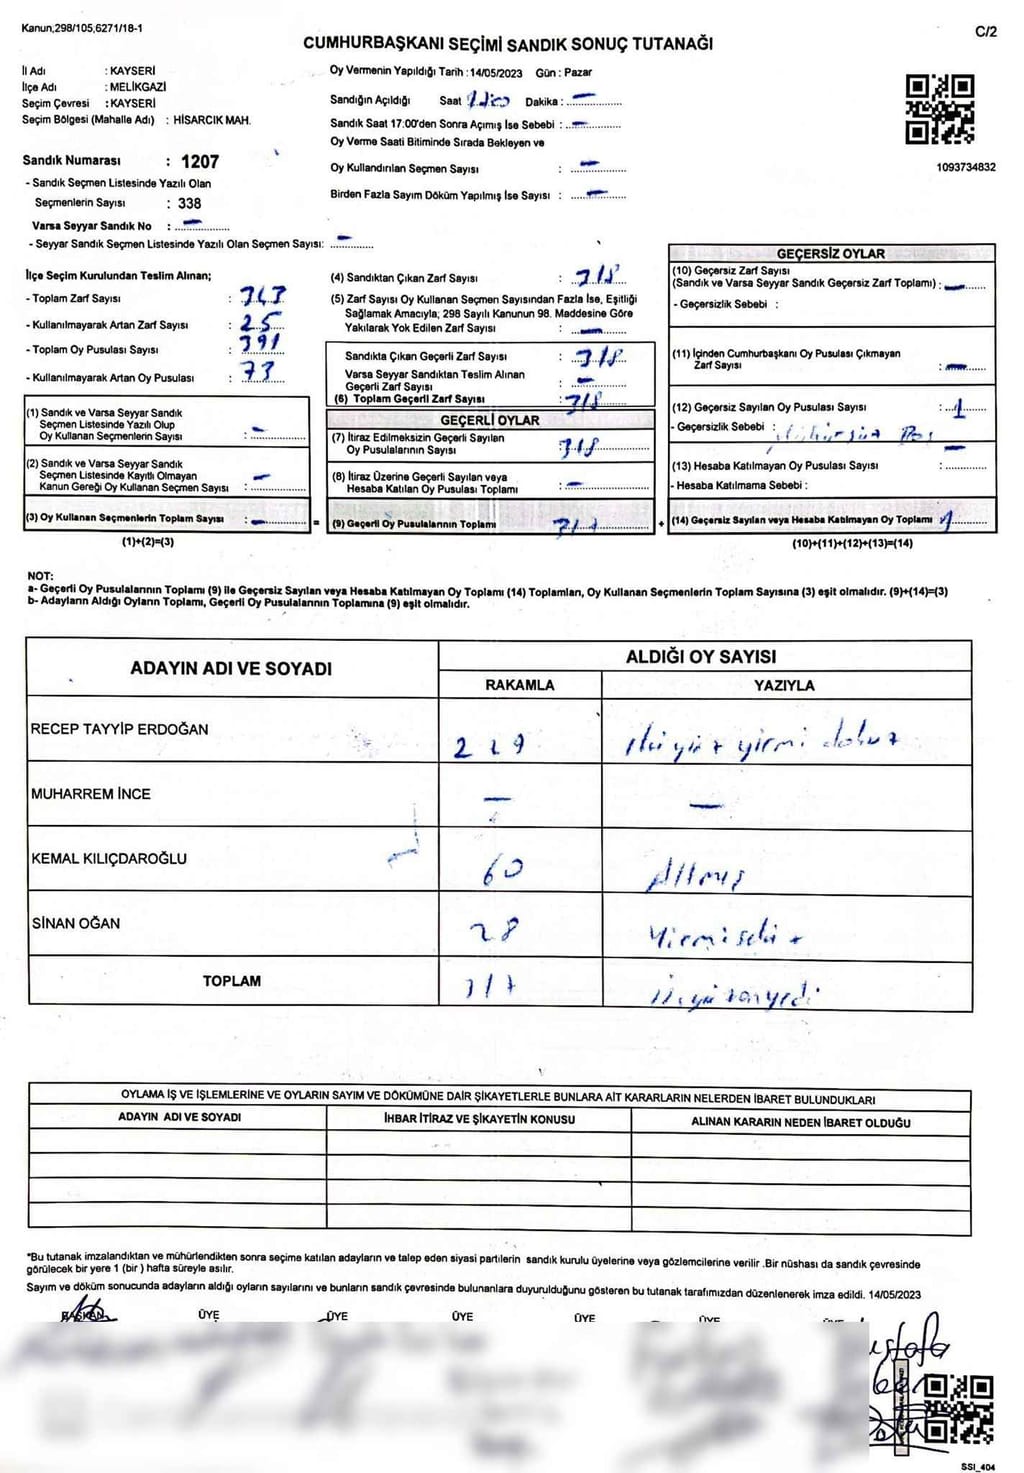 Kanun;298/105,6271/18-1
C/2
CUMHURBAŞKANI SEÇİMİ SANDIK SONUÇ TUTANAĞI
İl Adı : KAYSERİ
İlçe Adı : MELİKGAZİ
Seçim Çevresi : KAYSERİ
Seçim Bölgesi (Mahalle Adı) : HİSARCIK MAH.
Sandık Numarası : 1207
- Sandık Seçmen Listesinde Yazılı Olan
Seçmenlerin Sayısı : 338
Varsa Seyyar Sandık No : –
- Seyyar Sandık Seçmen Listesinde Yazılı Olan Seçmen Sayısı: –
Oy Vermenin Yapıldığı Tarih : 14/05/2023 Gün : Pazar
Sandığın Açıldığı Saat Dakika : –
Sandık Saat 17:00'den Sonra Açımış İse Sebebi : –
Oy Verme Saati Bitiminde Sırada Bekleyen ve
Oy Kullandırılan Seçmen Sayısı : –
Birden Fazla Sayım Döküm Yapılmış İse Sayısı : –
1093734832
İlçe Seçim Kurulundan Teslim Alınan;
- Toplam Zarf Sayısı : 343
- Kullanılmayarak Artan Zarf Sayısı : 25
- Toplam Oy Pusulası Sayısı : 391
- Kullanılmayarak Artan Oy Pusulası : 73
(1) Sandık ve Varsa Seyyar Sandık
Seçmen Listesinde Yazılı Olup
Oy Kullanan Seçmenlerin Sayısı : –
(2) Sandık ve Varsa Seyyar Sandık
Seçmen Listesinde Kayıtlı Olmayan
Kanun Gereği Oy Kullanan Seçmen Sayısı : –
(3) Oy Kullanan Seçmenlerin Toplam Sayısı : –
(1)+(2)=(3)
(4) Sandıktan Çıkan Zarf Sayısı : 318
(5) Zarf Sayısı Oy Kullanan Seçmen Sayısından Fazla İse, Eşitliği
Sağlamak Amacıyla; 298 Sayılı Kanunun 98. Maddesine Göre
Yakılarak Yok Edilen Zarf Sayısı : –
Sandıkta Çıkan Geçerli Zarf Sayısı : 318
Varsa Seyyar Sandıktan Teslim Alınan
Geçerli Zarf Sayısı : –
(6) Toplam Geçerli Zarf Sayısı : 318
GEÇERLİ OYLAR
(7) İtiraz Edilmeksizin Geçerli Sayılan
Oy Pusulalarının Sayısı : 318
(8) İtiraz Üzerine Geçerli Sayılan veya
Hesaba Katılan Oy Pusulası Toplamı : –
= (9) Geçerli Oy Pusulalarının Toplamı 317 +
GEÇERSİZ OYLAR
(10) Geçersiz Zarf Sayısı
(Sandık ve Varsa Seyyar Sandık Geçersiz Zarf Toplamı) : –
- Geçersizlik Sebebi :
(11) İçinden Cumhurbaşkanı Oy Pusulası Çıkmayan
Zarf Sayısı : –
(12) Geçersiz Sayılan Oy Pusulası Sayısı : 1
- Geçersizlik Sebebi :
(13) Hesaba Katılmayan Oy Pusulası Sayısı : –
- Hesaba Katılmama Sebebi :
(14) Geçersiz Sayılan veya Hesaba Katılmayan Oy Toplamı : 1
(10)+(11)+(12)+(13)=(14)
NOT:
a- Geçerli Oy Pusulalarının Toplamı (9) ile Geçersiz Sayılan veya Hesaba Katılmayan Oy Toplamı (14) Toplamları, Oy Kullanan Seçmenlerin Toplam Sayısına (3) eşit olmalıdır. (9)+(14)=(3)
b- Adayların Aldığı Oyların Toplamı, Geçerli Oy Pusulalarının Toplamına (9) eşit olmalıdır.
ADAYIN ADI VE SOYADI
ALDIĞI OY SAYISI
RAKAMLA YAZIYLA
RECEP TAYYİP ERDOĞAN 229 ikiyüz yirmi dokuz
MUHARREM İNCE – –
KEMAL KILIÇDAROĞLU 60 Altmış
SİNAN OĞAN 28 Yirmi sekiz
TOPLAM 317 üçyüz onyedi
OYLAMA İŞ VE İŞLEMLERİNE VE OYLARIN SAYIM VE DÖKÜMÜNE DAİR ŞİKAYETLERLE BUNLARA AİT KARARLARIN NELERDEN İBARET BULUNDUKLARI
ADAYIN ADI VE SOYADI İHBAR İTİRAZ VE ŞİKAYETİN KONUSU ALINAN KARARIN NEDEN İBARET OLDUĞU
*Bu tutanak imzalandıktan ve mühürlendikten sonra seçime katılan adayların ve talep eden siyasi partilerin sandık kurulu üyelerine veya gözlemcilerine verilir .Bir nüshası da sandık çevresinde
görülecek bir yere 1 (bir ) hafta süreyle asılır.
Sayım ve döküm sonucunda adayların aldığı oyların sayılarını ve bunların sandık çevresinde bulunanlara duyurulduğunu gösteren bu tutanak tarafımızdan düzenlenerek imza edildi. 14/05/2023
BAŞKAN ÜYE ÜYE ÜYE ÜYE ÜYE
SSI_404